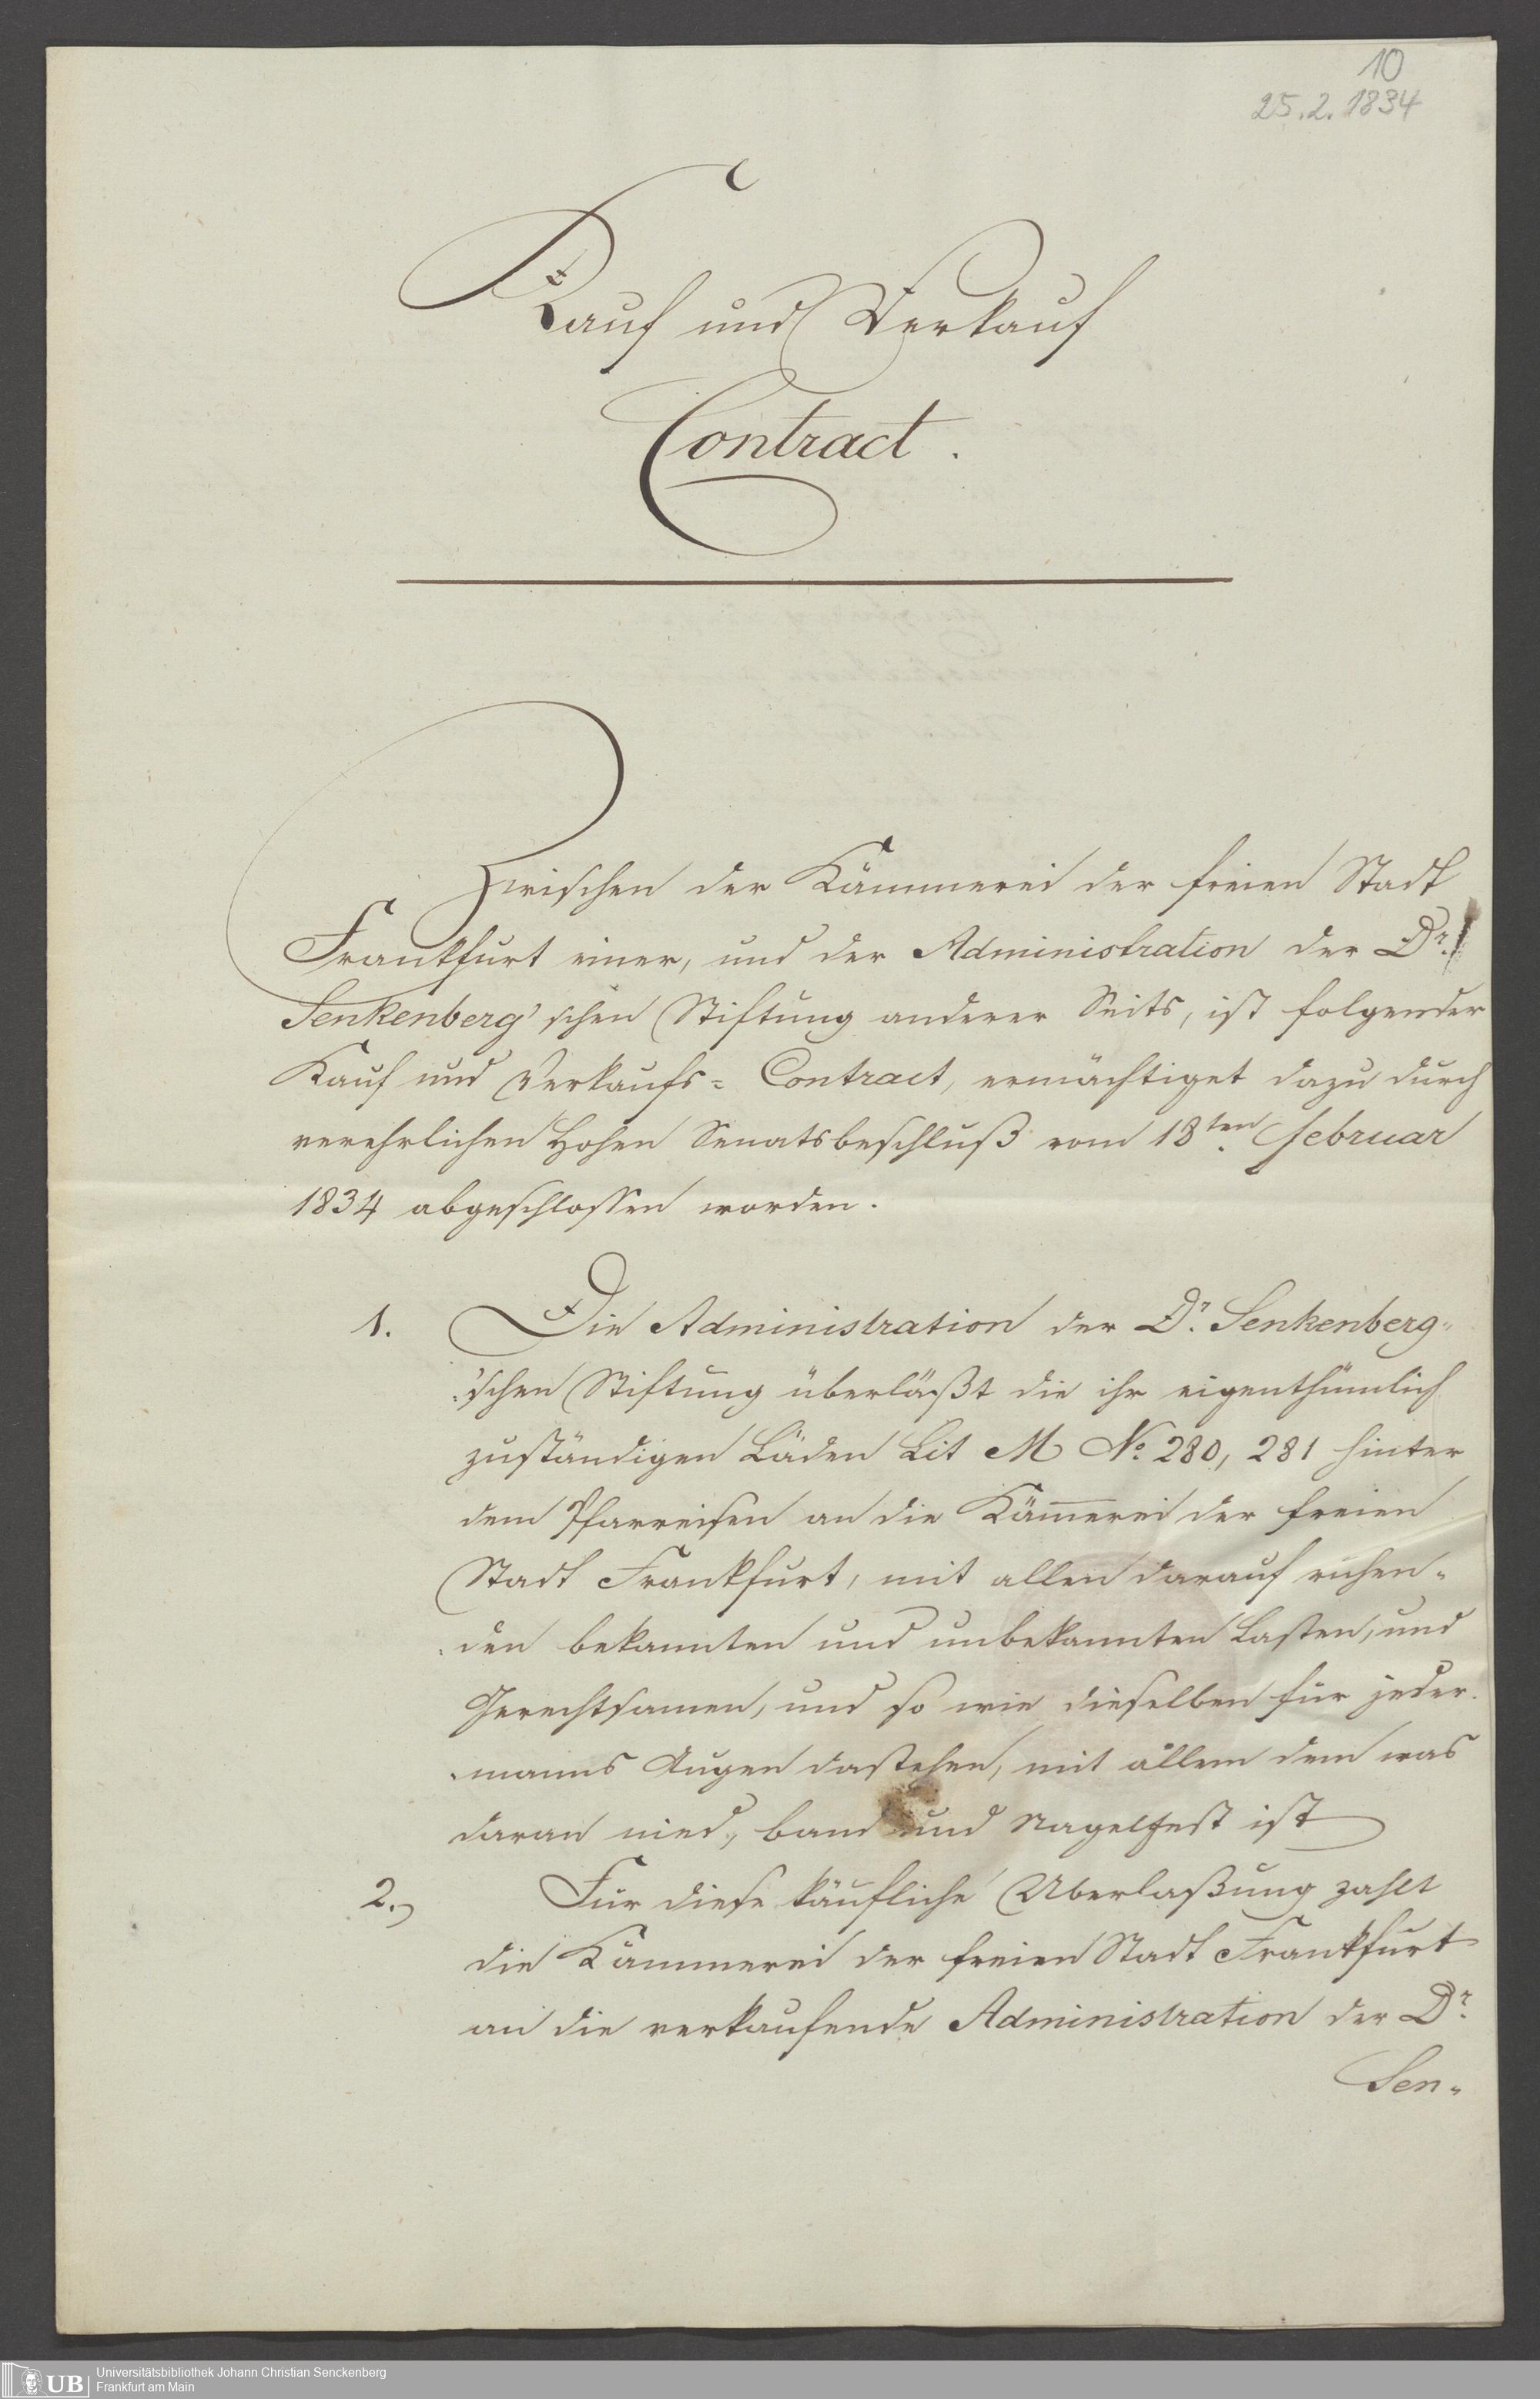 10
25.2.1834
Kauf und Verkauf
Contract.
Zwischen der Kämmerei der freien Stadt
Frankfurt einer, und der Administration der Dr.
Senkenberg'schen Stiftung anderer Seits, ist folgender
Kauf und Verkaufs= Contract, ermächtiget dazu durch
verehrlichen Hohen Senatsbeschluß vom 18ten Februar
1834 abgeschlossen worden.
1. Die Administration der Dr. Senkenberg-
'schen Stiftung überläßt die ihr eigenthümlich
zuständigen Läden Lit M No. 280, 281 hinter
dem Pfarreisen an die Kam̅erei der freien
Stadt Frankfurt, mit allen darauf ruhen-
den bekannten und unbekannten Lasten, und
Gerechtsamen, und so wie dieselben für jeder-
manns Augen dastehen, mit allem dem was
daran nied, band und Nagelfest ist
2., Für diese käufliche Uberlaßung zahlt
die Kämmerei der freien Stadt Frankfurt
an die verkaufende Administration der Dr.
Sen-
UB
Universitätsbibliothek Johann Christian Senckenberg
Frankfurt am Main